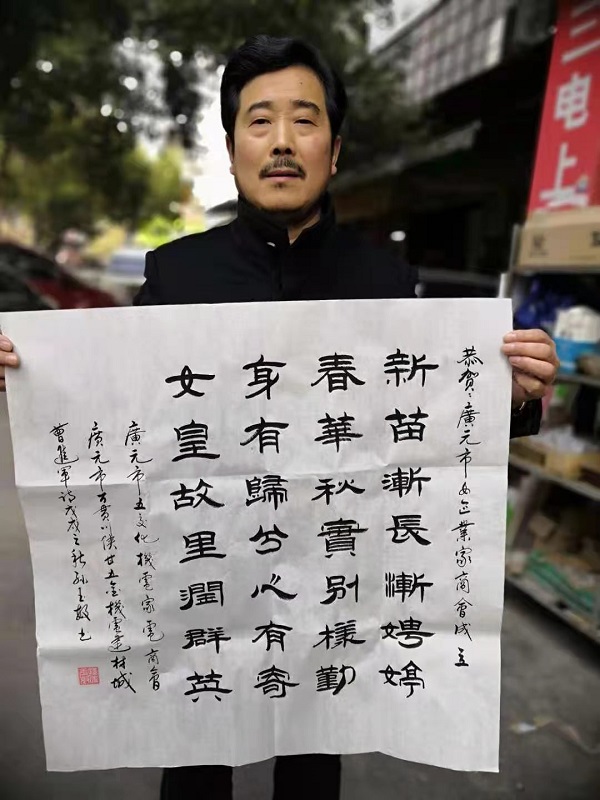 恭賀：廣元市女企業家商會成立
新苗漸長漸娉婷
春華秋實別樣勤
身有歸兮心有寄
女皇故里潤群英
廣元市五交化機電家電商會
廣元市川陝甘五金機電建材城
曹進軍詩戊戌之秋孫
三电上